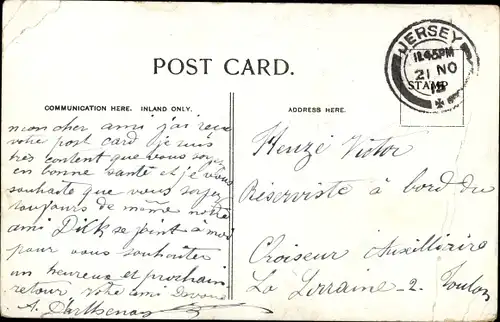 JERSEY
12.45PM
21 NO
POST CARD.
STAMP
COMMUNICATION HERE. INLAND ONLY.
ADDRESS HERE.
mon cher ami j'ai reçu
votre post card je suis
très content que vous soyez
en bonne santé et je vous
souhaite que vous soyez
toujours de même notre
ami Dick se joint à moi
pour vous souhaiter
un heureux et prochain
retour votre ami
A.
Henzé Victor
Réserviste à bord du
Croiseur Auxillirire
La Lorraine - 2 - Toulon